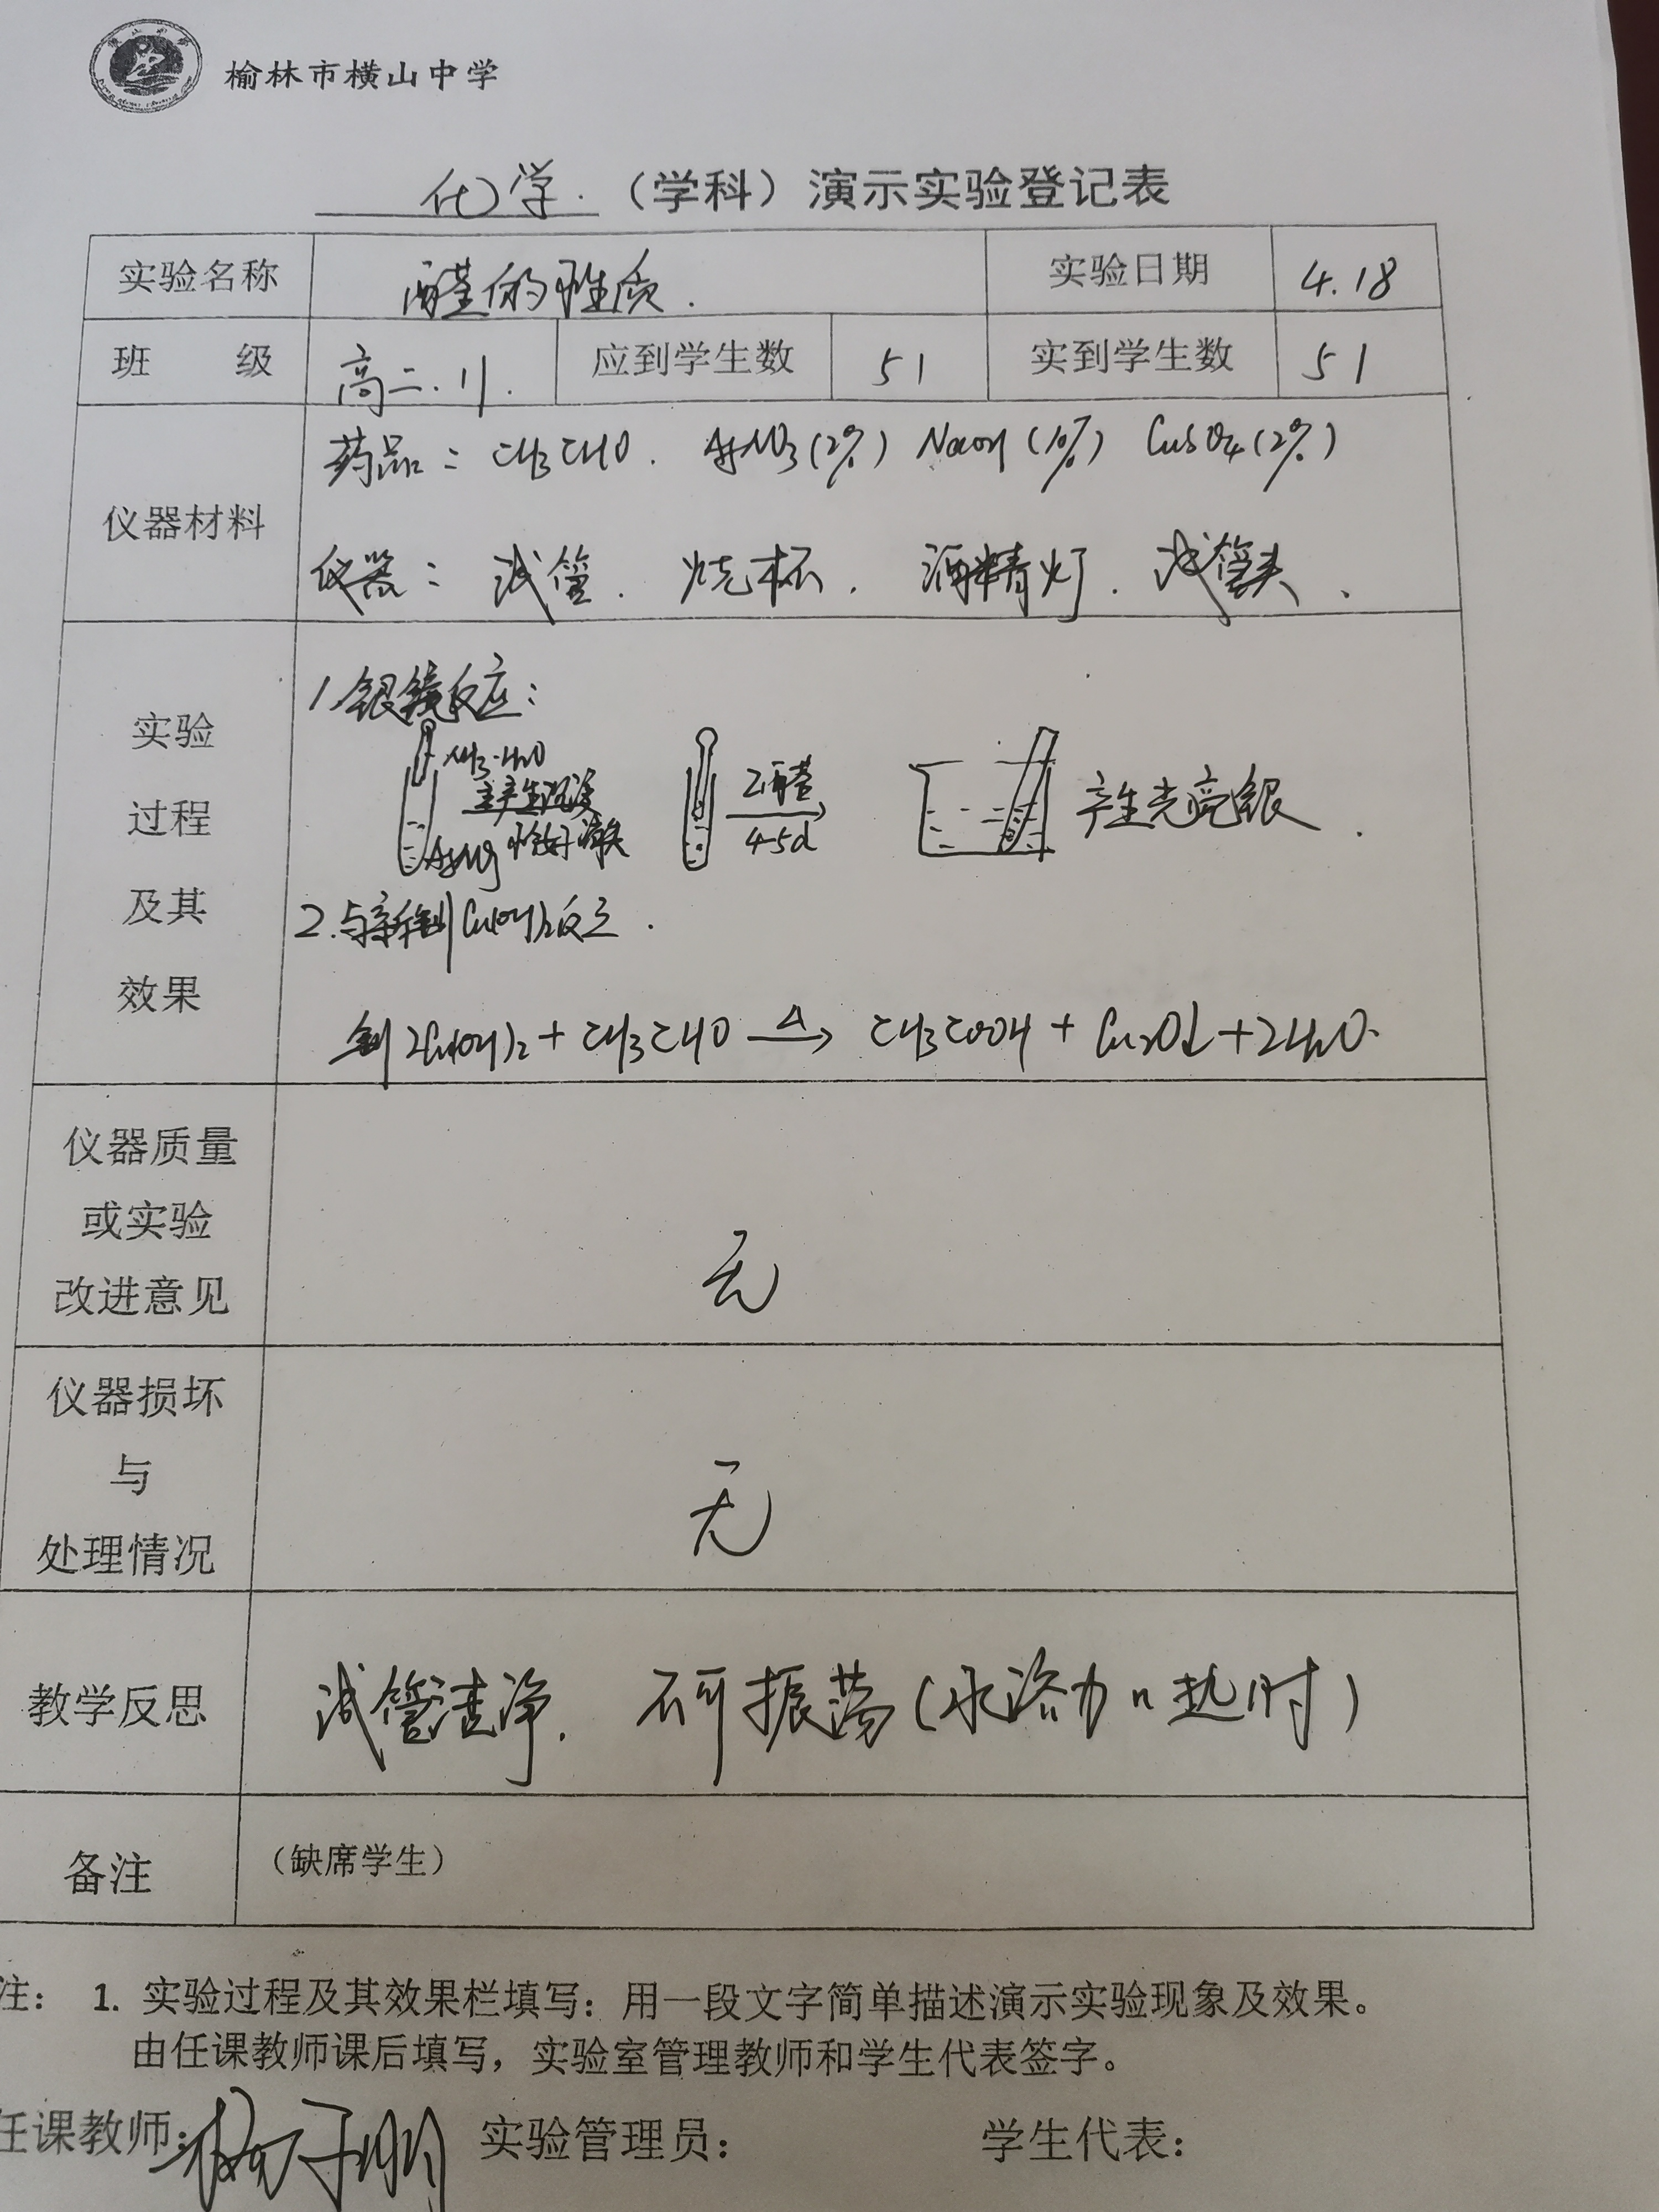 榆林市横山中学
化学 （学科）演示实验登记表
实验名称 醛的性质. 实验日期 4.18
班 级 高二.11. 应到学生数 51 实到学生数 51
仪器材料
药品：CH3CHO. AgNO3(2%) NaOH(10%) CuSO4(2%)
仪器：试管. 烧杯. 酒精灯. 试管夹、
实验
过程
及其
效果
1.银镜反应：
NH3·H2O
产生沉淀
恰好消失
AgNO3
乙醛
4-5d
产生光亮银.
2.与新制Cu(OH)2反应.
制2Cu(OH)2+CH3CHO △→ CH3COOH+Cu2O↓+2H2O.
仪器质量
或实验
改进意见
无
仪器损坏
与
处理情况
无
教学反思
试管洁净. 不可振荡(水浴加热时)
备注 （缺席学生）
注： 1. 实验过程及其效果栏填写：用一段文字简单描述演示实验现象及效果。
由任课教师课后填写，实验室管理教师和学生代表签字。
任课教师： 实验管理员： 学生代表：